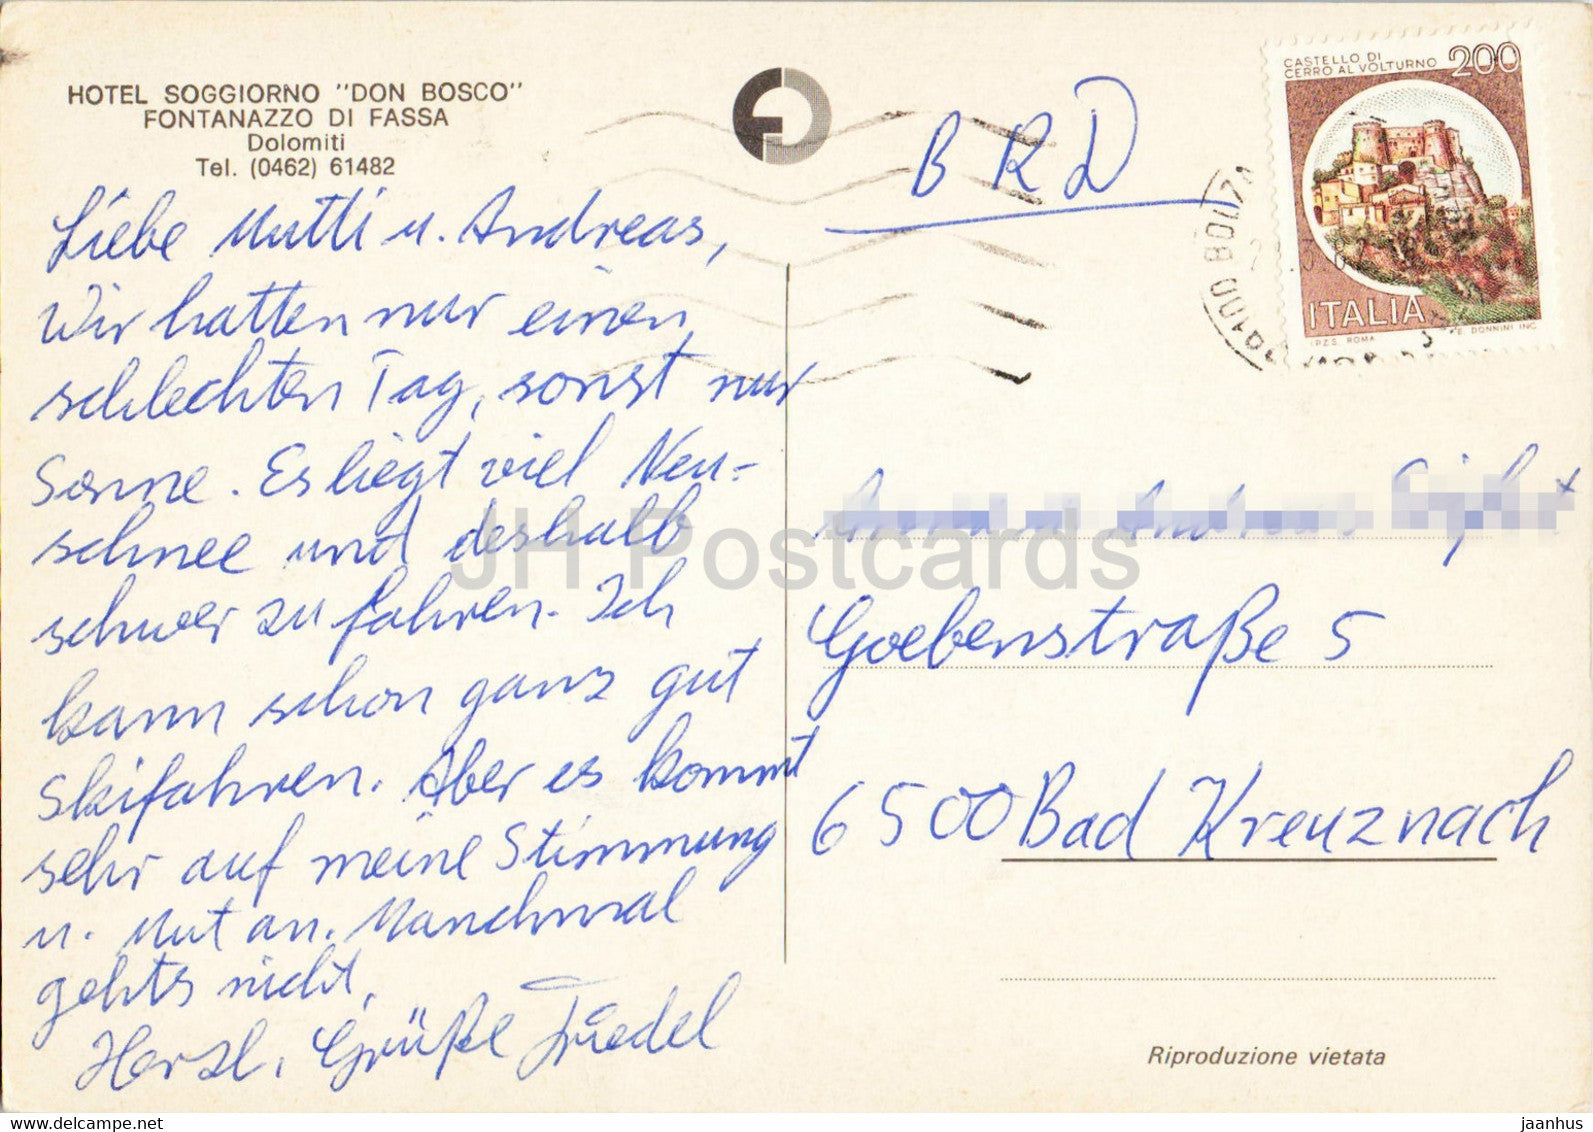 HOTEL SOGGIORNO "DON BOSCO"
FONTANAZZO DI FASSA
Dolomiti
Tel. (0462) 61482
Liebe Mutti u. Andreas,
Wir hatten nur einen
schlechten Tag, sonst nur
Sonne. Es liegt viel Neu-
schnee und deshalb
schwer zu fahren. Ich
kann schon ganz gut
Skifahren. Aber es kommt
sehr auf meine Stimmung
u. Mut an. Manchmal
gehts nicht.
Herzl. Grüße Friedel
BRD
CASTELLO DI
CERRO AL VOLTURNO 200
ITALIA
I.P.Z.S. ROMA E. DONNINI INC.
39100 BOLZA
Goebenstraße 5
6500 Bad Kreuznach
Riproduzione vietata
JH Postcards
www.delcampe.net
jaanhus